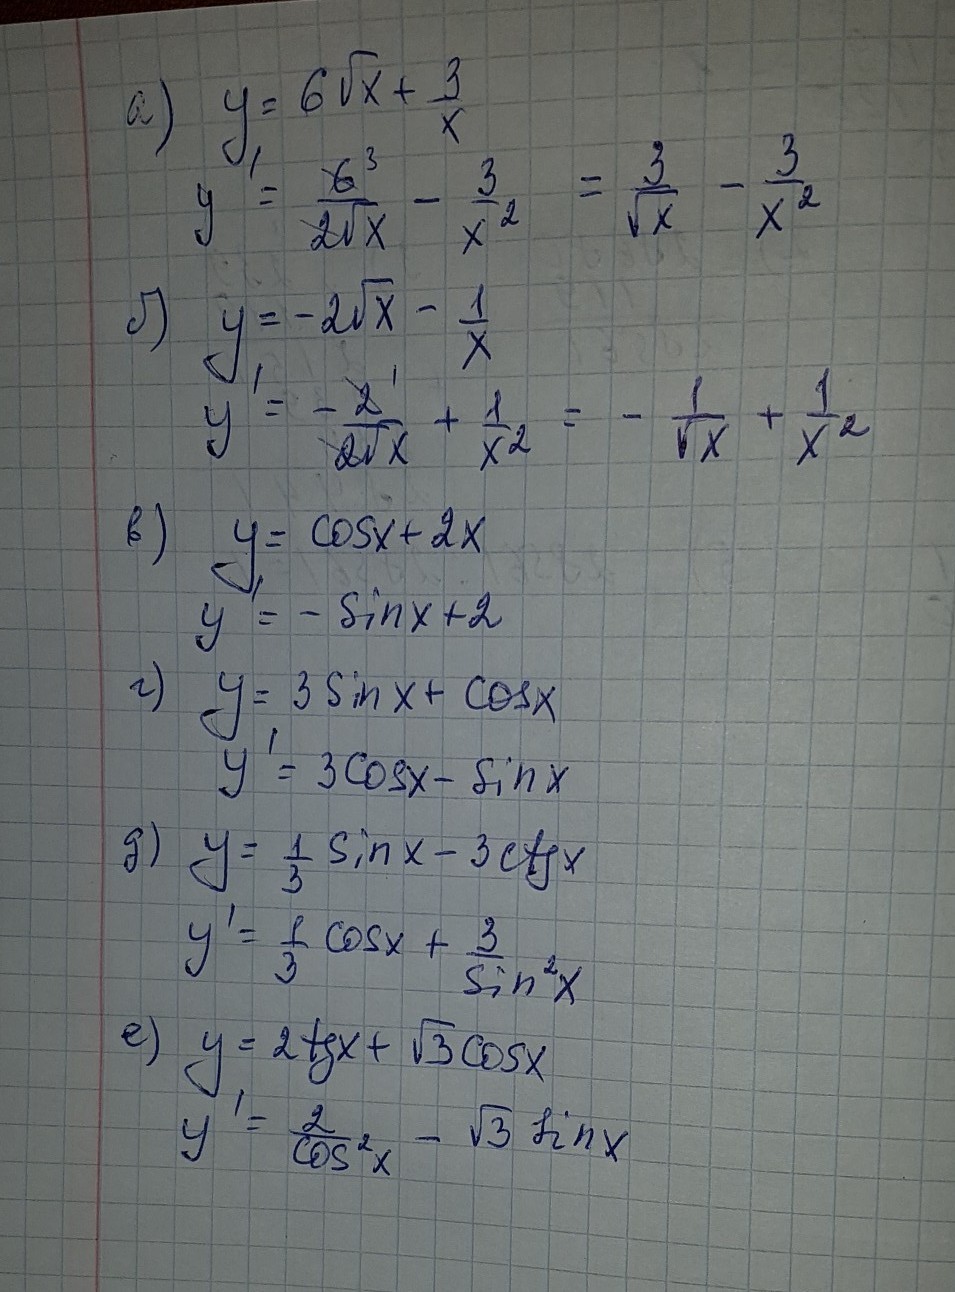 а) y = 6√x + 3/x
y' = 6³/2√x - 3/x² = 3/√x - 3/x²
б) y = -2√x - 1/x
y' = -2¹/2√x + 1/x² = - 1/√x + 1/x²
в) y = cosx + 2x
y' = - sinx + 2
г) y = 3 sinx + cosx
y' = 3cosx - sinx
д) y = 1/3 sinx - 3ctgx
y' = 1/3 cosx + 3/sin²x
е) y = 2tgx + √3 cosx
y' = 2/cos²x - √3 sinx